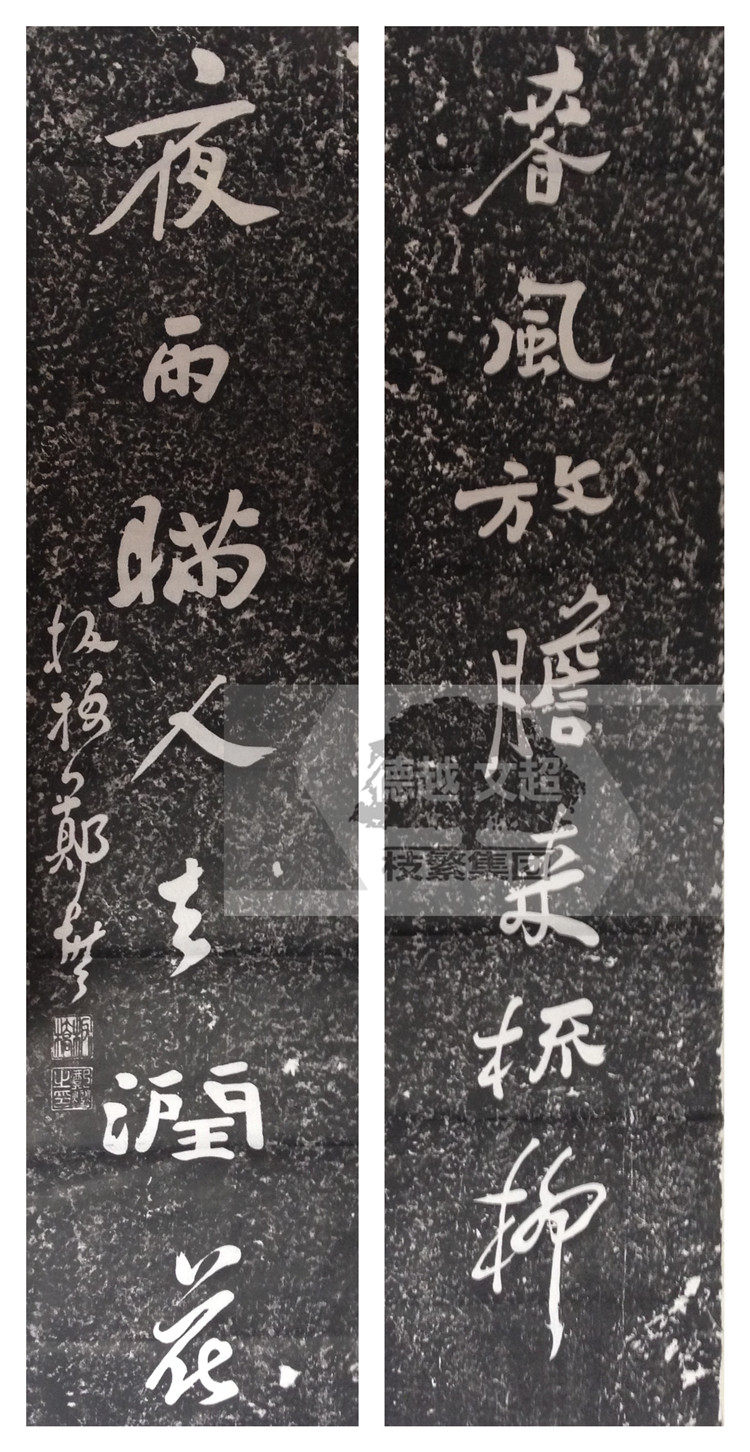 春風放膽來梳柳
夜雨瞞人去潤花
板橋鄭燮
德越 文超
枝繁集团